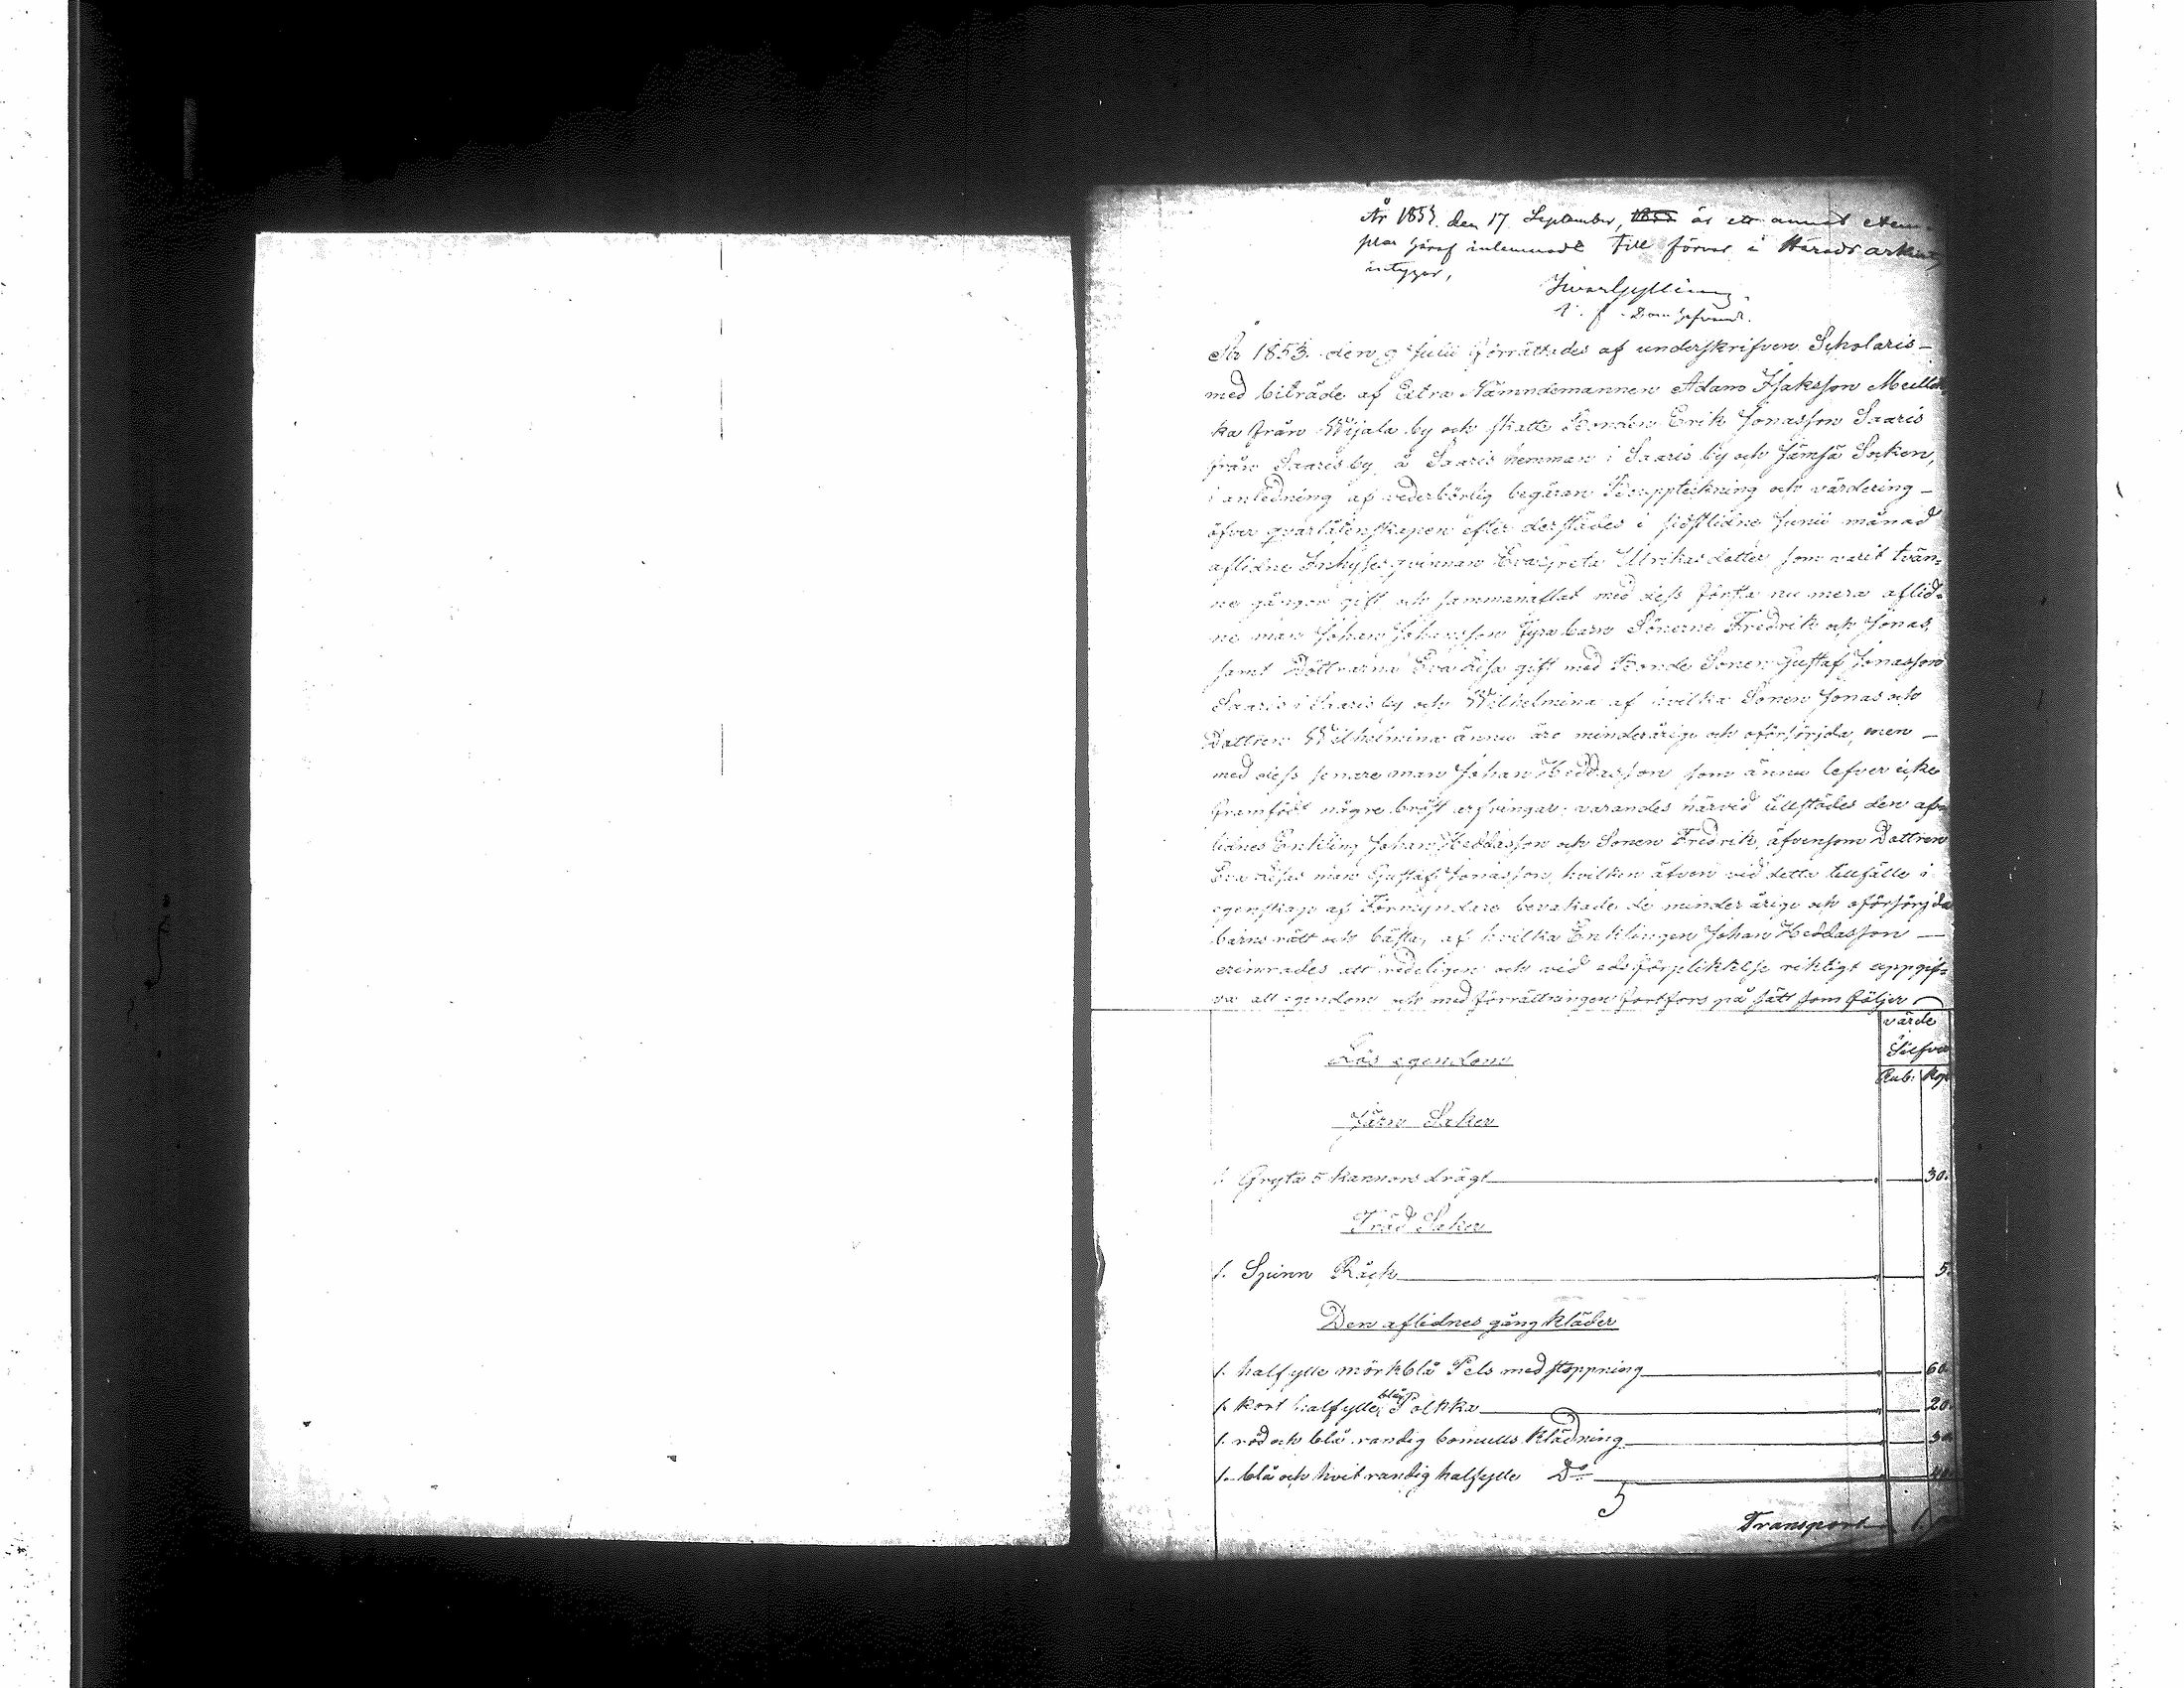 År 1853. den 17 September, 1853 är ett annat exem-
plar häraf inlemnadt till förvar i Härads arkivet,
intygar,
Ivar Gylling.
t. f. Domhafvande.
År 1853. den 9 Julii förrättades af underskrifven Scholaris -
med biträde af Extra Nämndemannen Adam Isaksson Meillok
ka från Wijala by och skatte Bonden Erik Jonasson Saaris
från Saaris by, å Saaris hemman i Saaris by och Jämsä Socken,
i anledning af vederbörlig begäran Bouppteckning och värdering -
öfver qvarlåtenskapen efter derstädes i sistlidne Junii månad
aflidne Inhyses qvinnan Eva Greta Ulrikas dotter, som varit tvän-
ne gångor gift och sammanaflat med dess första nu mera aflid-
ne man Johan Johansson fyra barn Sönerne Fredrik och Jonas,
samt Döttrarna Eva Lisa gift med Bonde Sonen Gustaf Jonasson
Saaris i Saaris by och Wilhelmina af hvilka Sonen Jonas och
Dottren Wilhelmina ännu äro minderåriga och oförsörjda, men -
med dess senare man Johan Heddasson som ännu lefver icke
framfödt några bröst arfvingar; varandes härvid tillstädes den af-
lidnes Enkling Johan Heddasson och Sonen Fredrik, äfvensom Dottren
Eva Lisas man Gustaf Jonasson, hvilken äfven vid detta tillfälle i
egenskap af Förmyndare bevakade de minderåriga och oförsörjda
barns rätt och bästa, af hvilka Enklingen Johan Heddasson -
erinrades att redeligen och vid eds förpliktelse riktigt uppgif-
va all egendom och med förrättningen fortfors på sätt som följer
värde
Silfver
Rub: Kop
Lös egendom
Järn Saker
1. Gryta 5 kannors drägt 30.
Träd Saker
1. Spinn Råck 5.
Den aflidnes gång kläder
1. halfylle mörkblå Pels med stoppning 60.
blågr.
1. kort halfylle Poltka 20.
1. röd och blå randig bomulls Klädning
1. blå och hvit randig halfylle Do
Transport 1.